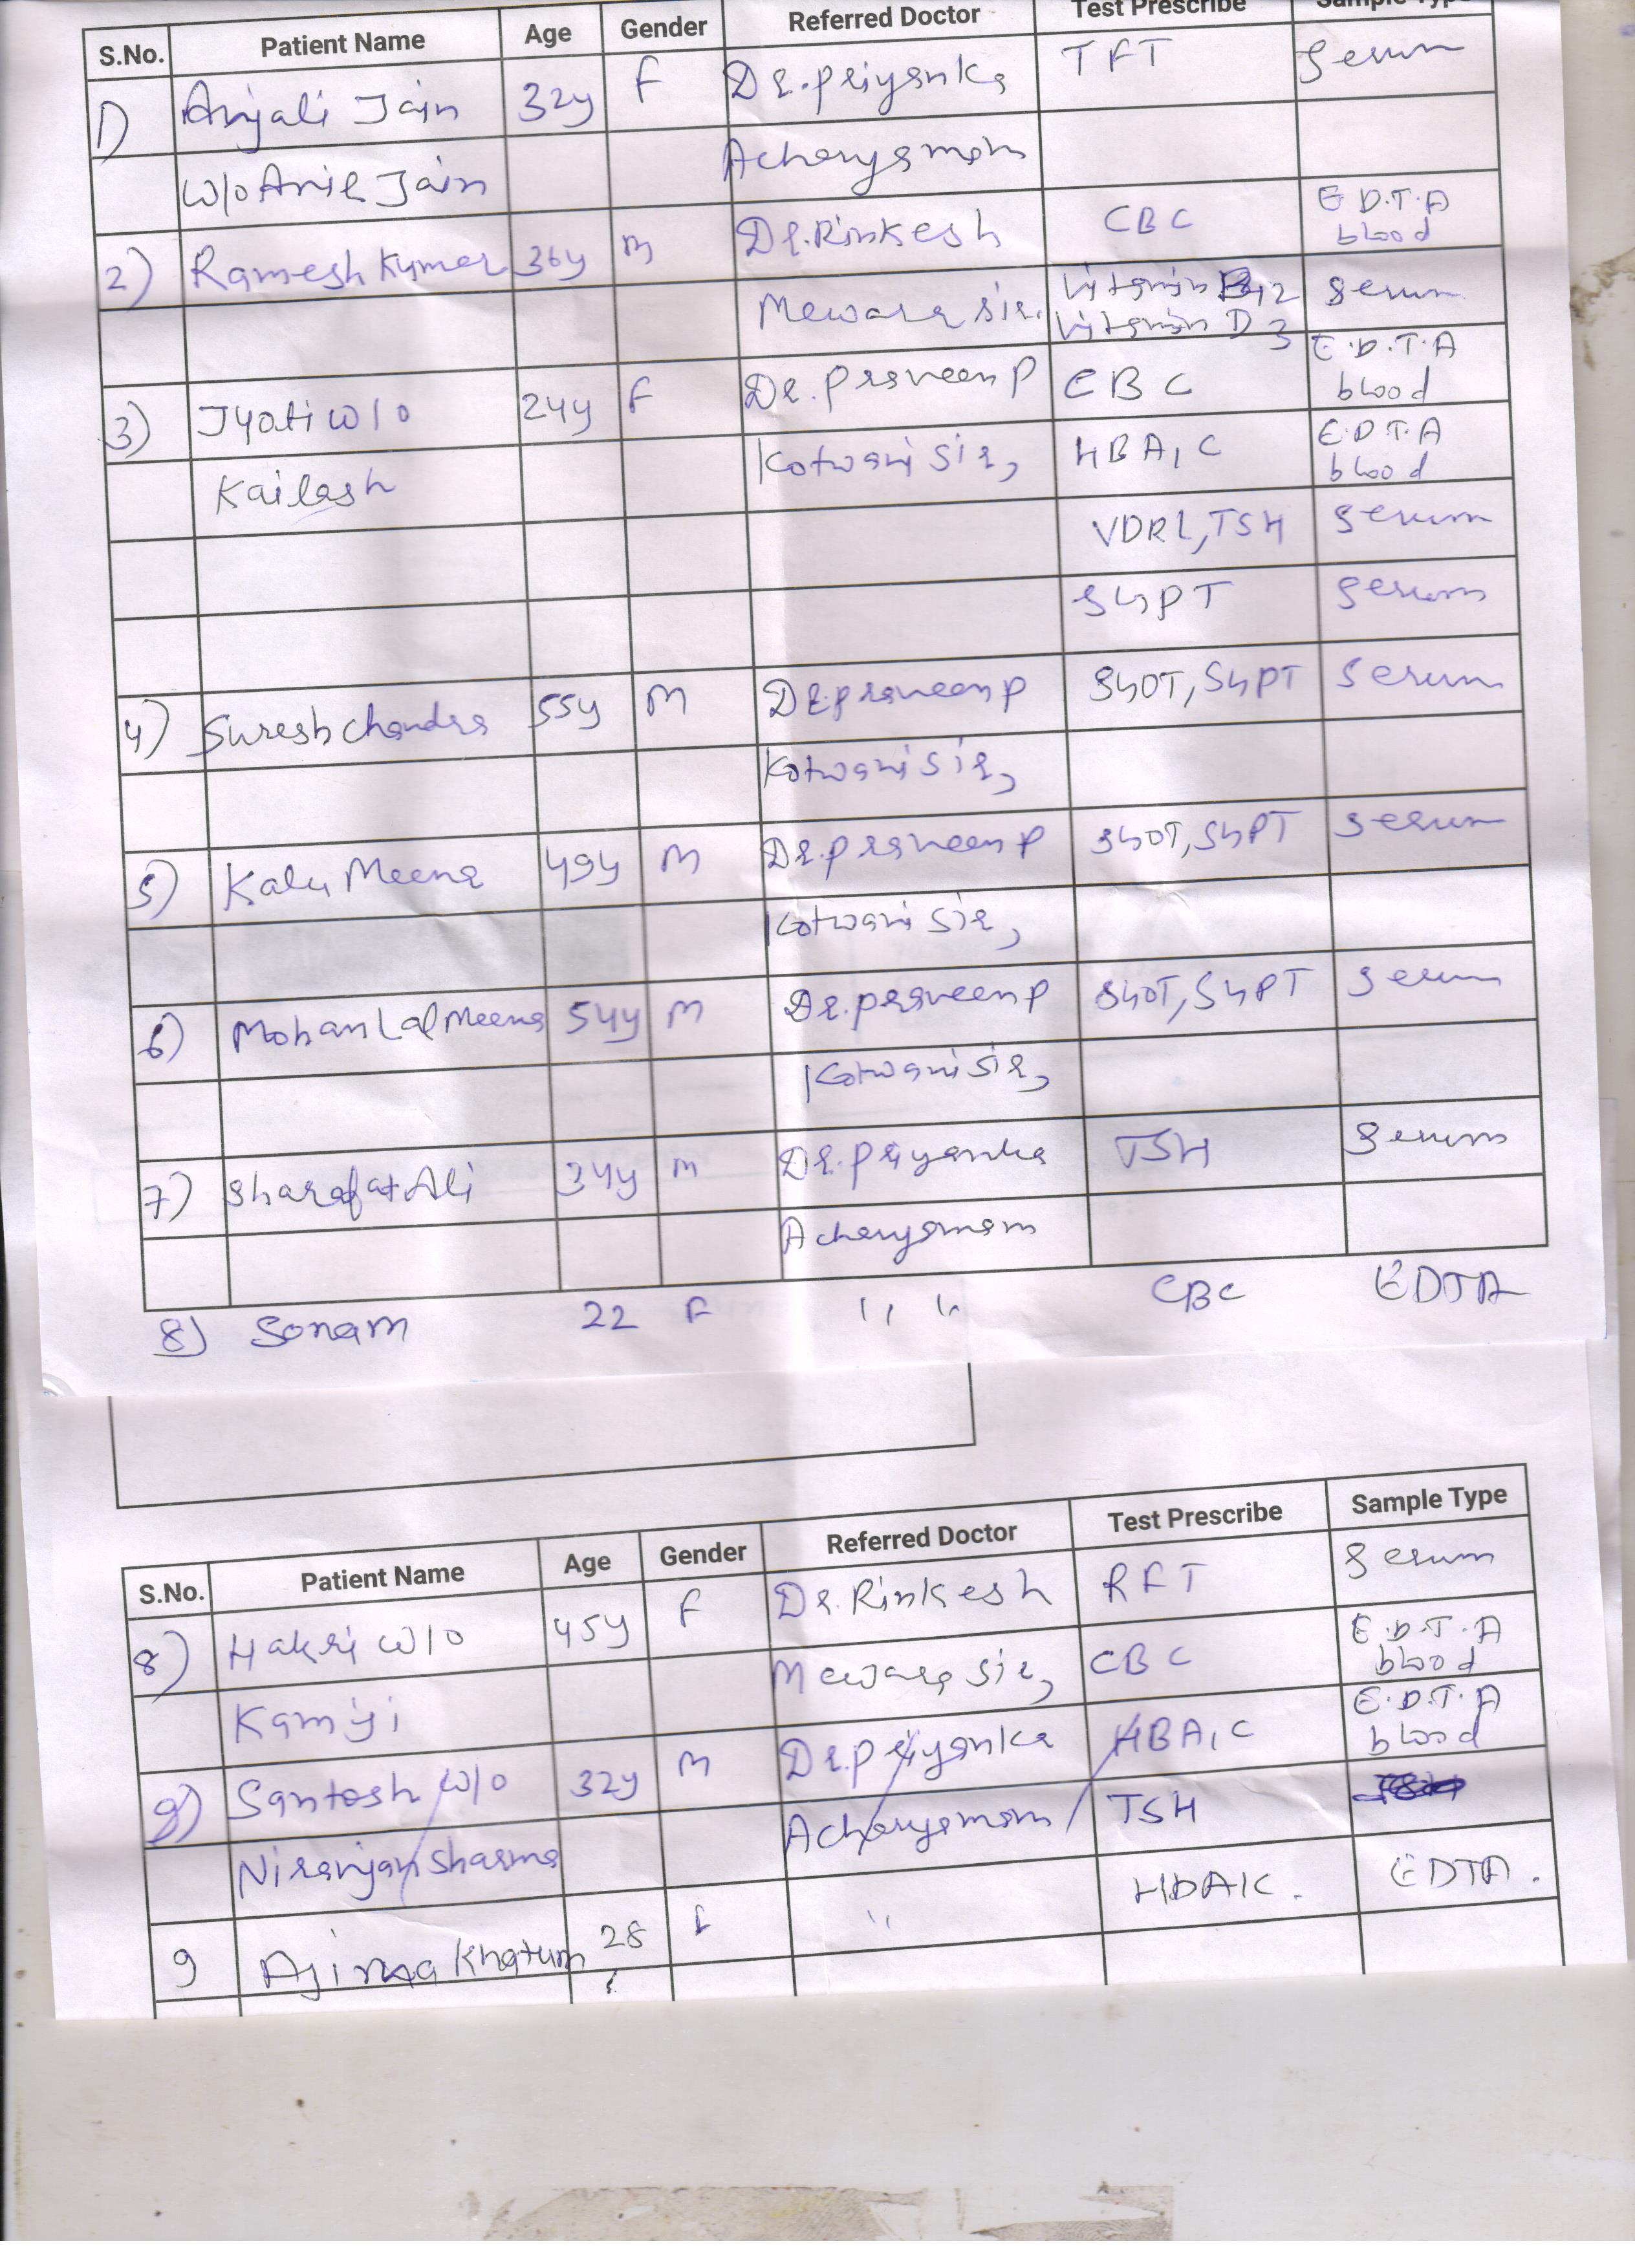 S.No. Patient Name Age Gender Referred Doctor Test Prescribe Sample Type
1) Anjali Jain 32y F Dr. Priyanka TFT Serum
W/o Anil Jain Acharya mam
2) Ramesh Kumar 36y M Dr. Rinkesh CBC E.D.T.A blood
Mewara sir. Vitamin B12 Serum
Vitamin D3
3) Jyoti W/o 24y F Dr. Praveen P CBC E.D.T.A blood
Kailash Kotwani Sir, HBA1C E.D.T.A blood
VDRL, TSH Serum
SGPT Serum
4) Suresh Chandra 55y M Dr. Praveen P SGOT, SGPT Serum
Kotwani Sir,
5) Kalu Meena 49y M Dr. Praveen P SGOT, SGPT Serum
Kotwani Sir,
6) Mohan Lal Meena 54y M Dr. Praveen P SGOT, SGPT Serum
Kotwani Sir,
7) Sharafat Ali 34y M Dr. Priyanka TSH Serum
Acharya mam
8) Sonam 22 F ,, ,, CBC EDTA
S.No. Patient Name Age Gender Referred Doctor Test Prescribe Sample Type
8) Hakri W/o 45y F Dr. Rinkesh RFT Serum
Kamji Mewara Sir, CBC E.D.T.A blood
9) Santosh W/o 32y M Dr. Priyanka HBA1C E.D.T.A blood
Niranjan Sharma Acharya mam TSH
9 Ajima Khatun 28 F " HBA1C. EDTA.